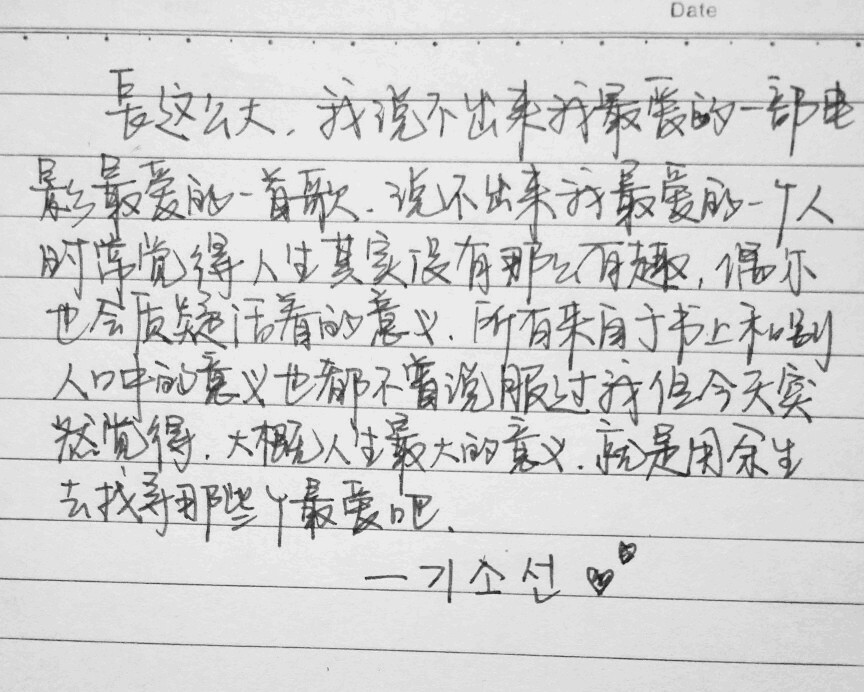 Date
長这么大，我说不出来我最爱的一部电
影最爱的一首歌，说不出来我最爱的一个人
时常觉得人生其实没有那么有趣，偶尔
也会质疑活着的意义，所有来自于书上和别
人口中的意义也都不曾说服过我但今天突
然觉得，大概人生最大的意义，就是用余生
去找寻那些个最爱吧，
一기소선 ♡♡